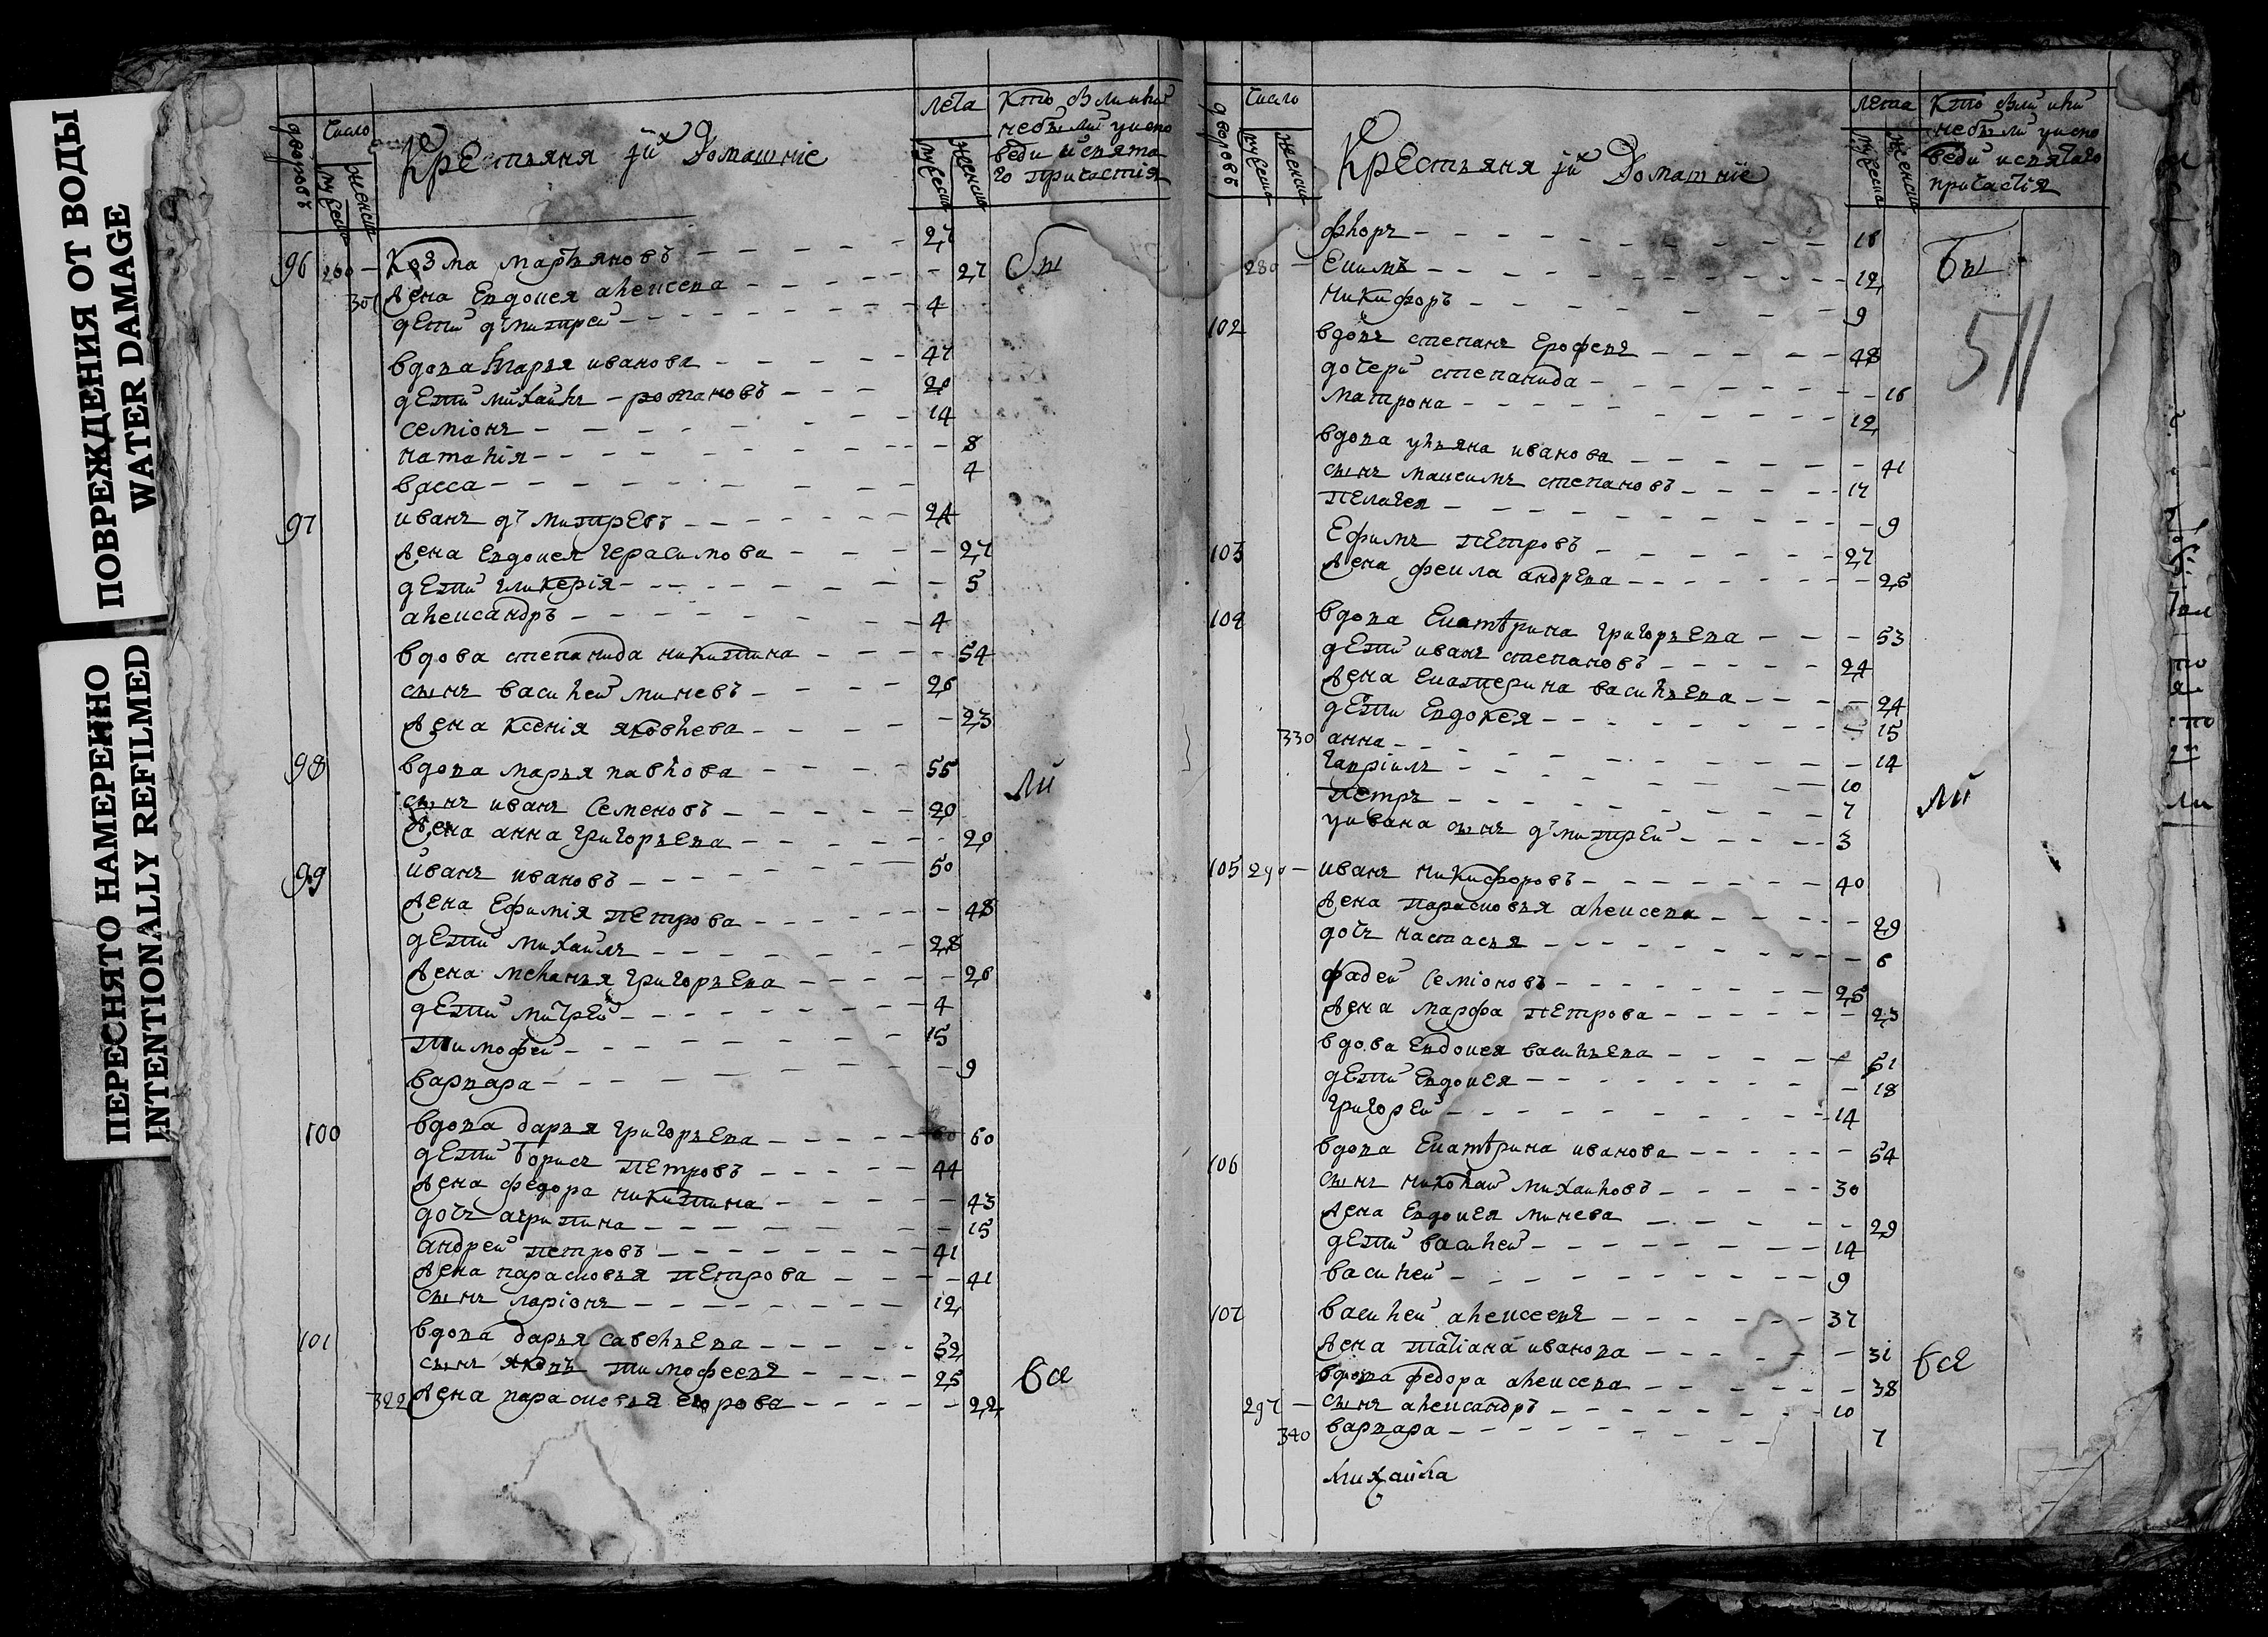 ПОВРЕЖДЕНИЯ ОТ ВОДЫ
WATER DAMAGE
ПЕРЕСНЯТО НАМЕРЕННО
INTENTIONALLY REFILMED
дворовъ
Число
мужеска
женска
Крестьяня и ихъ Домашние
лета
мужеска
женска
Кто былъ или
небылъ у испо
веди и свята
го причастия
96 260 Козма маръяновъ 27
301 жена Евдокея алексева 27 бы
дети дмитрей 4
вдова Марья иванова 47
дети михаилъ романовъ 20
семионъ 14
наталия 8
васса 4
97 иванъ дмитревъ 24
жена Евдокея герасимова 27
дети гликерия 5
александръ 4
вдова степанида никитина 54
сынъ василей миневъ 26
жена ксения яковлева 23
98 вдова марья павлова 55
сынъ иванъ семеновъ 20 ли
жена анна григорьева 20
99 иванъ ивановъ 50
жена Ефимия петрова 48
дети михаилъ 28
жена меланья григорьева 26
дети митрей 4
тимофей 15
варвара 9
100 вдова дарья григорьева 60
дети борисъ петровъ 44
жена федора никитина 43
дочь агрипина 15
андрей петровъ 41
жена парасковья петрова 41
сынъ ларионъ 12
101 вдова дарья савельева 52
сынъ яковъ тимофеевъ 25 все
322 жена парасковья 22
дворовъ
число
мужеска
женска
Крестьяня и ихъ Домашние
лета
мужеска
женска
Кто былъ или
небылъ у испо
веди и святаго
причастия
флоръ 16
280 Екимъ 12 бы
никифоръ 9
511
102 вдовъ степанъ Ерофевъ 48
дочери степанида 16
матрона 12
вдова ульяна иванова 41
сынъ максимъ степановъ 17
пелагея 9
103 Ефимъ петровъ 27
жена фекла андрева 26
104 вдова Екатѣрина григорьева 53
дети иванъ степановъ 24
жена Екатерина васильева 24
дети Евдокея 15
330 анна 14
гавриилъ 10
петръ 7 ли
у ивана сынъ дмитрей 3
105 290 иванъ никифоровъ 40
жена парасковья алексева 29
дочь настасья 6
фадей семионовъ 25
жена марфа петрова 23
вдова Евдокея васильева 51
дети Евдокея 18
григорей 14
106 вдова Екатѣрина иванова 54
сынъ николай михайловъ 30
жена Евдокея минева 29
дети василей 14
василей 9
107 василей алексеевъ 37
жена татиана иванова 31
вдова федора алексева 38 все
297 сынъ александръ 10
340 варвара 7
михайла